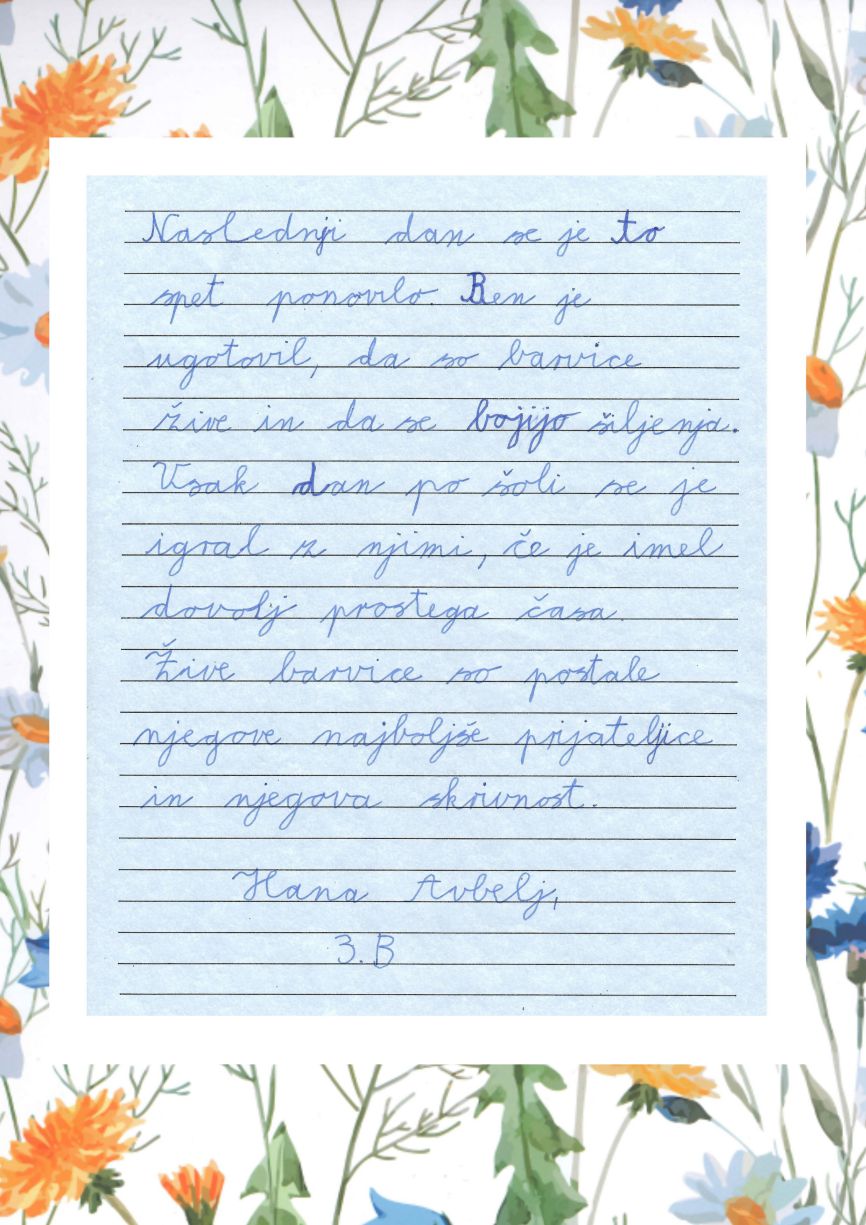 Naslednji dan se je to
spet ponovilo. Ben je
ugotovil, da so barvice
žive in da se bojijo šiljenja.
Vsak dan po šoli se je
igral z njimi, če je imel
dovolj prostega časa.
Žive barvice so postale
njegove najboljše prijateljice
in njegova skrivnost.
Hana Avbelj,
3. B